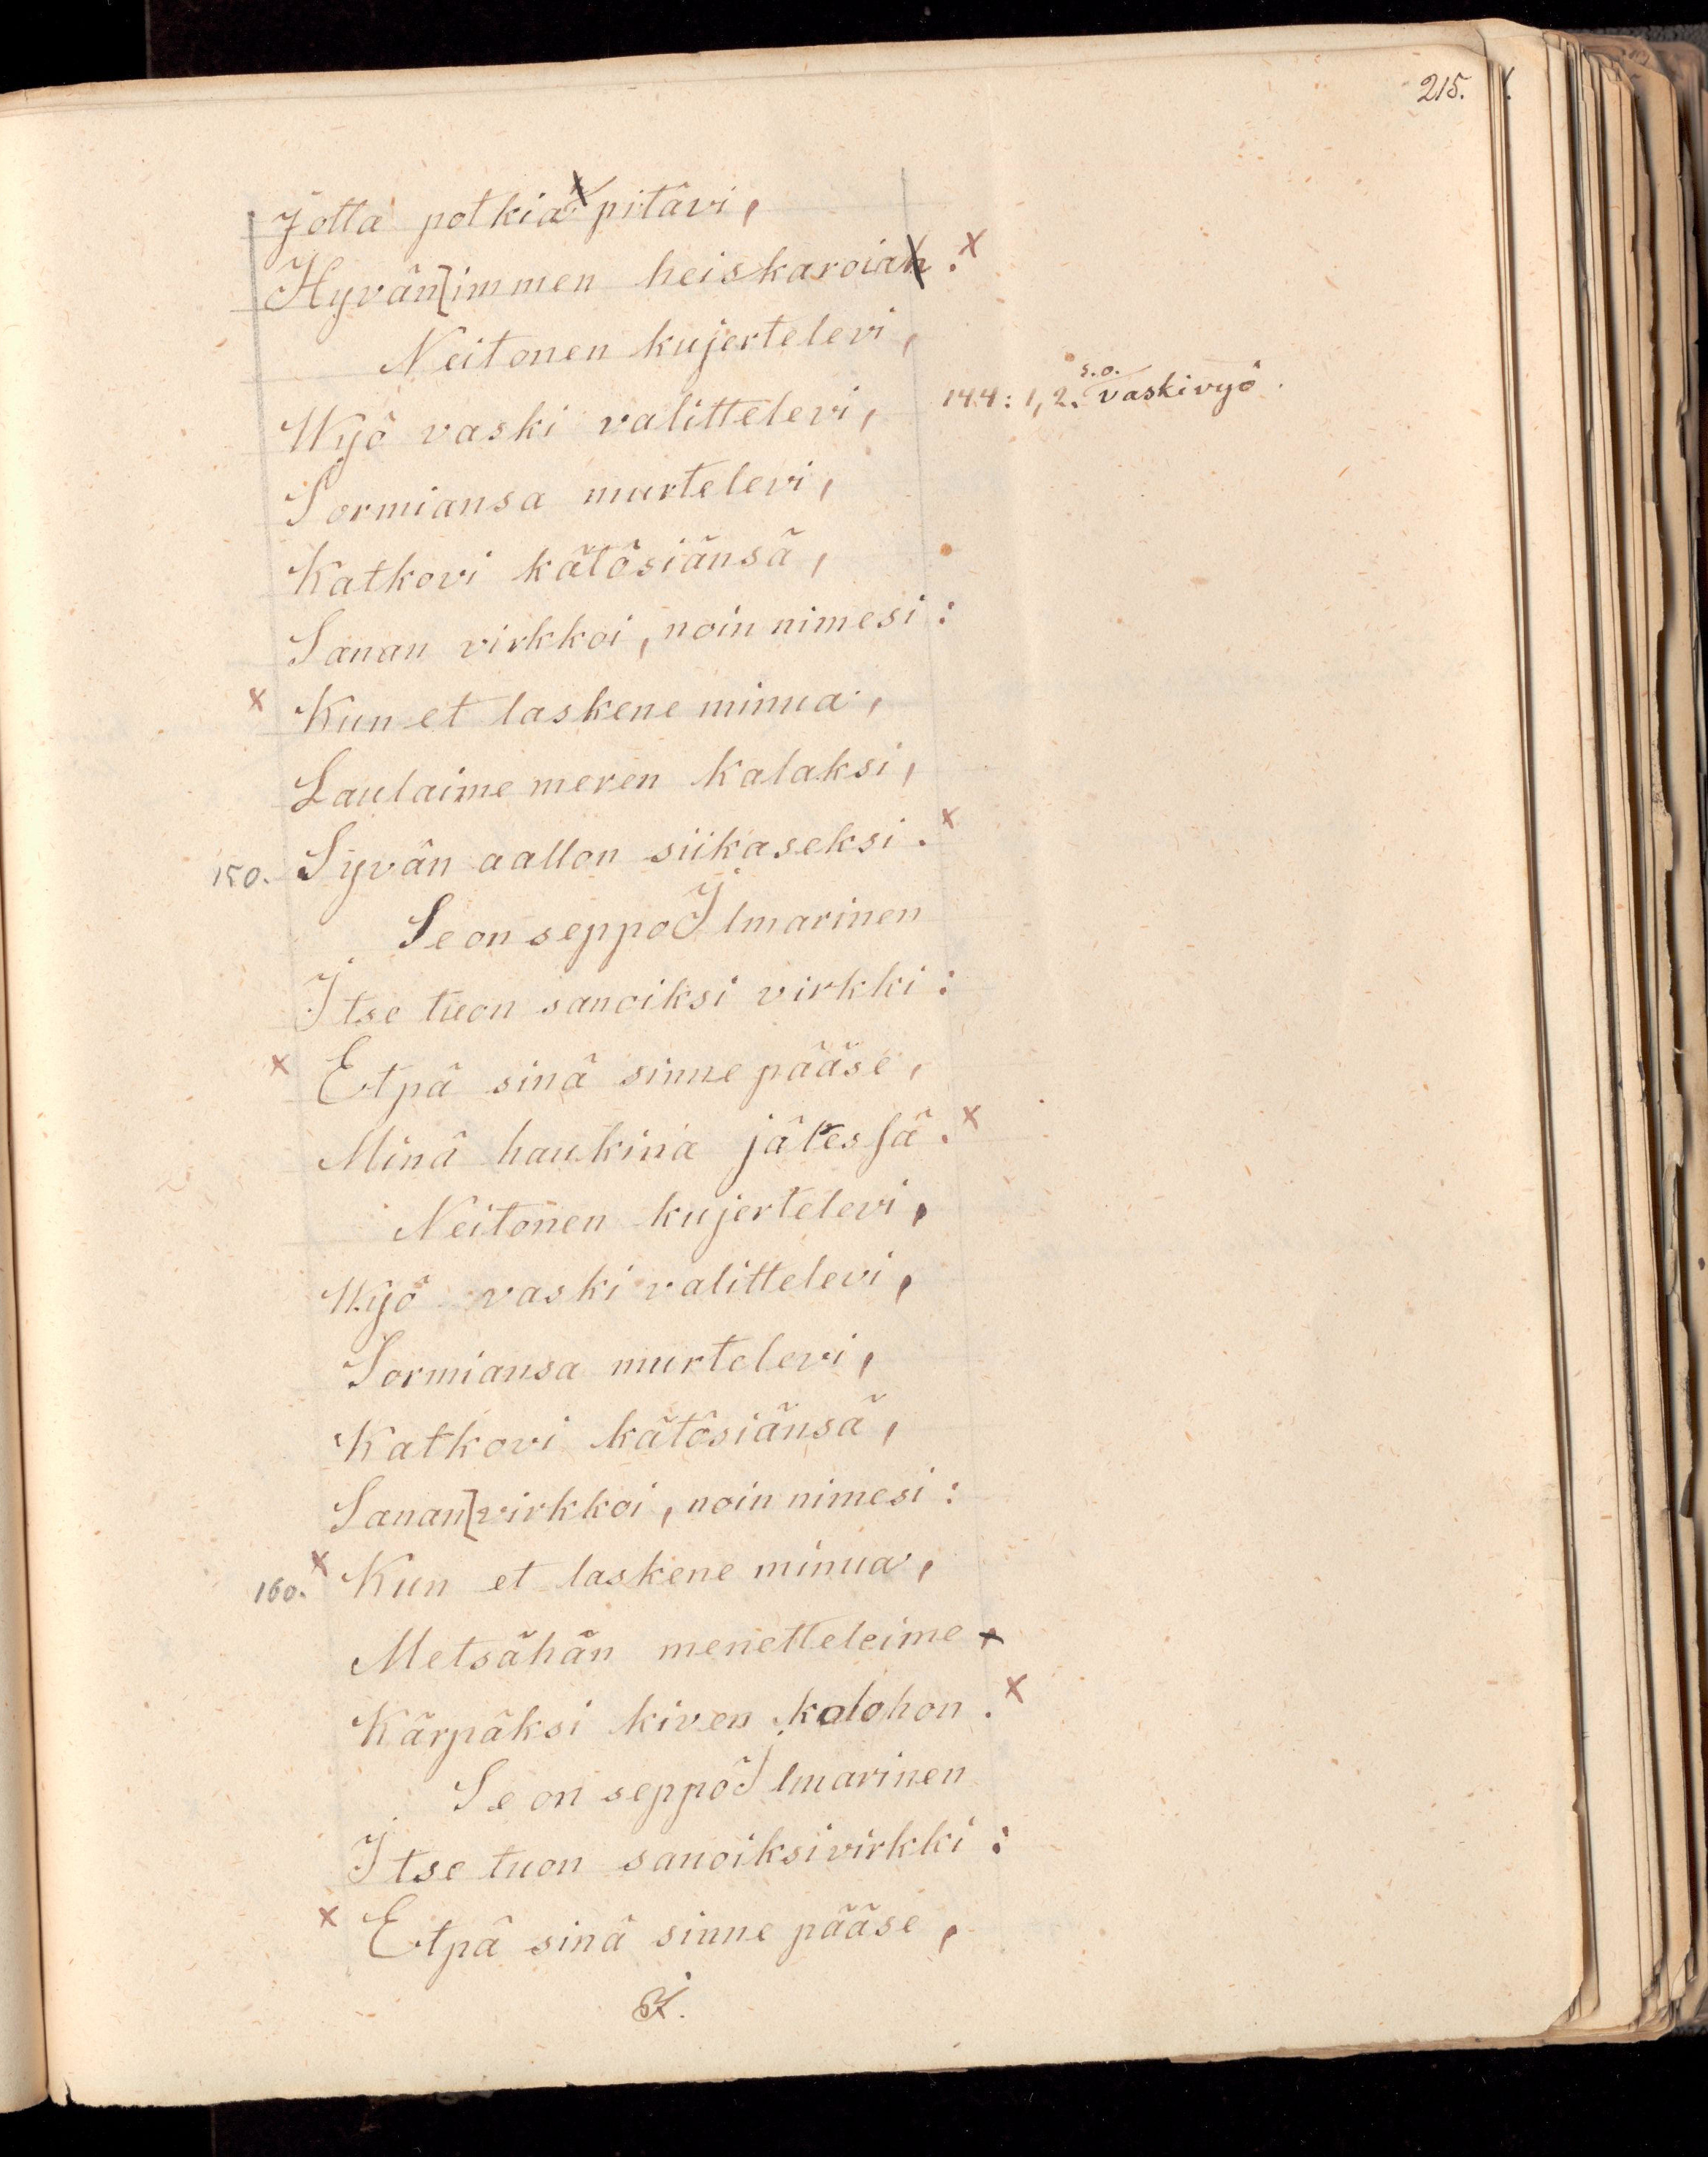 215.
Jotta potkia pitävi,
Hyvän[immen heiskaroian. x
Neitonen kujertelevi,
Wyö vaski valittelevi,
144: 1, 2. s.o. vaskivyö.
Sormiansa murtelevi,
Katkovi kätösiänsä,
Sanan virkkoi, noin nimesi:
x Kun et laskene minua,
Laulaime meren kalaksi,
150. Syvän aallon siikaseksi. x
Se on seppo Ilmarinen
Itse tuon sanoiksi virkki:
x Etpä sinä sinne pääse,
Minä haukina jälessä. x
Neitonen kujertelevi,
Wyö vaski valittelevi,
Sormiansa murtelevi,
Katkovi kätösiänsä,
Sanan[virkkoi, noin nimesi:
160. x Kun et laskene minua,
Metsähän menetteleime
Kärpäksi kiven kolohon. x
Se on seppo Ilmarinen
Itse tuon sanoiksi virkki:
x Etpä sinä sinne pääse,